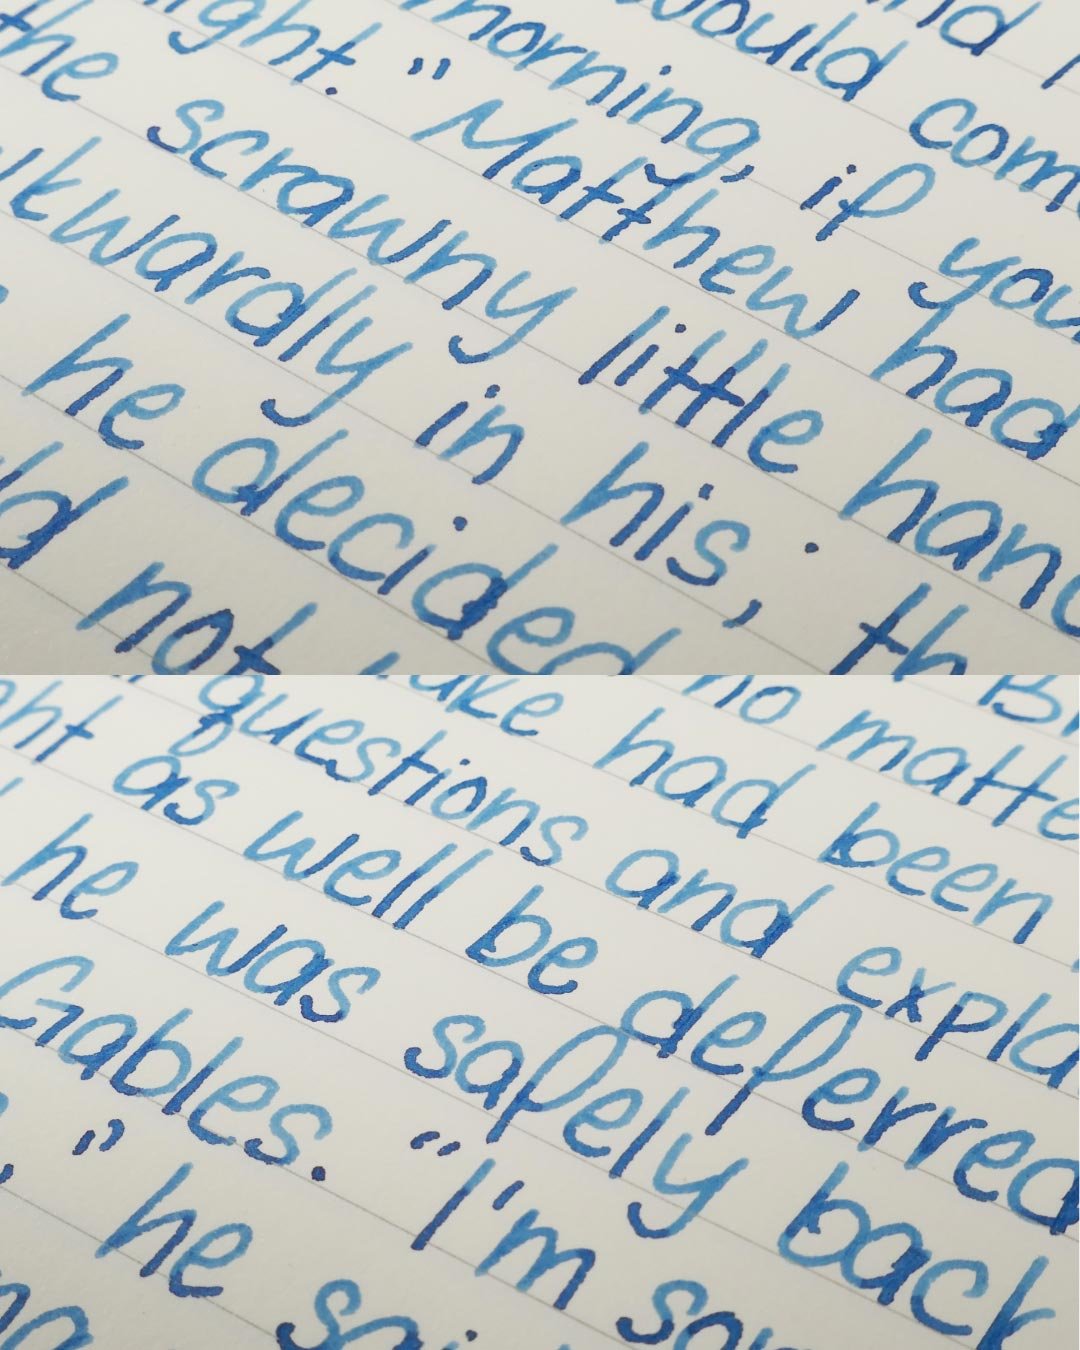 nd I
would com
morning, if you
ight." Matthew had
the scrawny little hand
wkwardly in his; th
he decided
ld not
Br
no matte
ake had been
questions and expla
ght as well be deferred
he was safely back
Gables. "I'm sor
," he sai